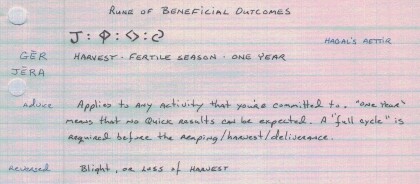 RUNE OF BENEFICIAL OUTCOMES
J : ᛄ : ᛃ : ᛃ HAGAL'S AETTIR
GĒR HARVEST · FERTILE SEASON · ONE YEAR
JĒRA
ADVICE Applies to any activity that you're committed to. "ONE YEAR"
means that no Quick results can be expected. A "full cycle" is
required before the reaping/harvest/deliverance.
REVERSED Blight, or LOSS of HARVEST